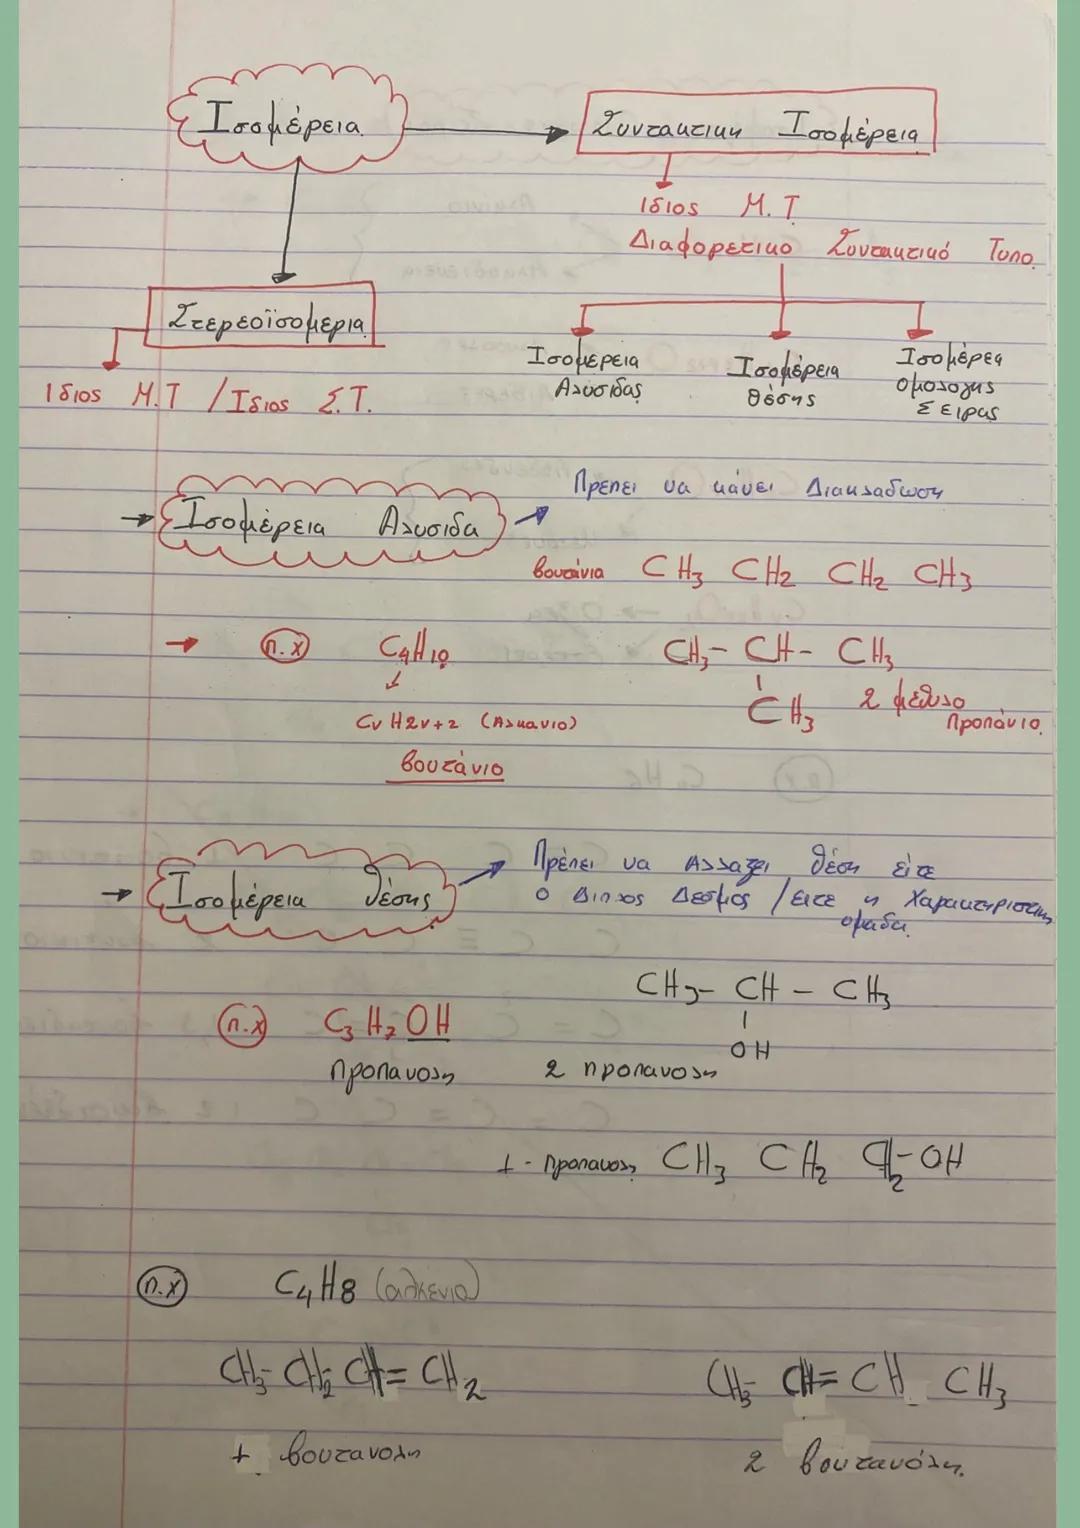 Ισομέρεια
Συντακτικη Ισομέρεια
Ιδιος Μ.Τ
Διαφορετικο Συντακτικό Τυπο.
Στερεοϊσομερια
Ιδιος Μ.Τ / Ιδιος Σ.Τ.
Ισομερεια Αλυσιδας
Ισομέρεια θέσης
Ισομέρεα ομολογης Σειρας
→ Ισομέρεια Αλυσιδα
Πρεπει να κάνει Διακλαδωση
βουτάνια CH3 CH2 CH2 CH3
→ π.χ C4H10
CH3- CH- CH3
CH3 2 μέθυλο προπάνιο.
CνH2ν+2 (Αλκανιο)
βουτάνιο
→ Ισομέρεια θέσης
Πρέπει να Αλλαζει θέση είτε
ο Διπλος Δεσμος / ειτε η Χαρακτηριστικη
ομαδα.
CH3- CH - CH3
OH
π.χ C3H7OH
προπανολη
2 προπανολη
1 - προπανολη CH3 CH2 CH2-OH
π.χ C4H8 (αλκενια)
CH3- CH2 CH= CH2
CH3- CH= CH CH3
1 βουτανολη
2 βουτανόλη.